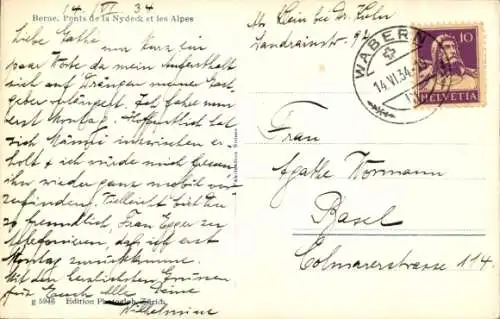 Berne. Ponts de la Nydeck et les Alpes
14. VI 34
Liebe Gathe
nur kurz ein
paar Worte da mein Aufenthalt
sich auf Drängen meiner Gast-
geber verlängert. Ich fahre nun
erst Montag. Hoffentlich hat
sich Männi inzwischen er-
holt & ich würde mich freuen
ihn wieder ganz mobil vor-
zufinden. Vielleicht bist Du
so freundlich, Frau Egger zu
telefonieren, dass ich erst
Montag zurückkomme.
Mit den herzlichsten Grüssen
für Euch Alle Deine
Wilhelmine
g 5946 Edition Photoglob, Zürich.
Abs. Klein bei Dr. Huln
Landrainstr. 92
WABERN
14.VI.34.
10
HELVETIA
Frau
Agathe Normann
Basel
Colmarerstrasse 114.